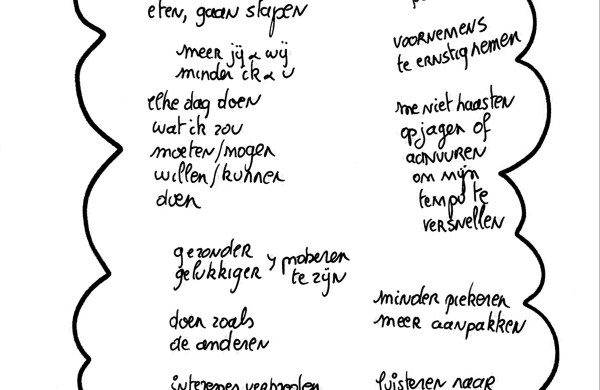 eten, gaan slapen
meer jij & wij
minder ik & u
elke dag doen
wat ik zou
moeten/mogen
willen/kunnen
doen
gezonder
gelukkiger
proberen
te zijn
doen zoals
de anderen
voornemens
te ernstig nemen
me niet haasten
opjagen of
aanvuren
om mijn
tempo te
versnellen
minder piekeren
meer aanpakken
luisteren naar